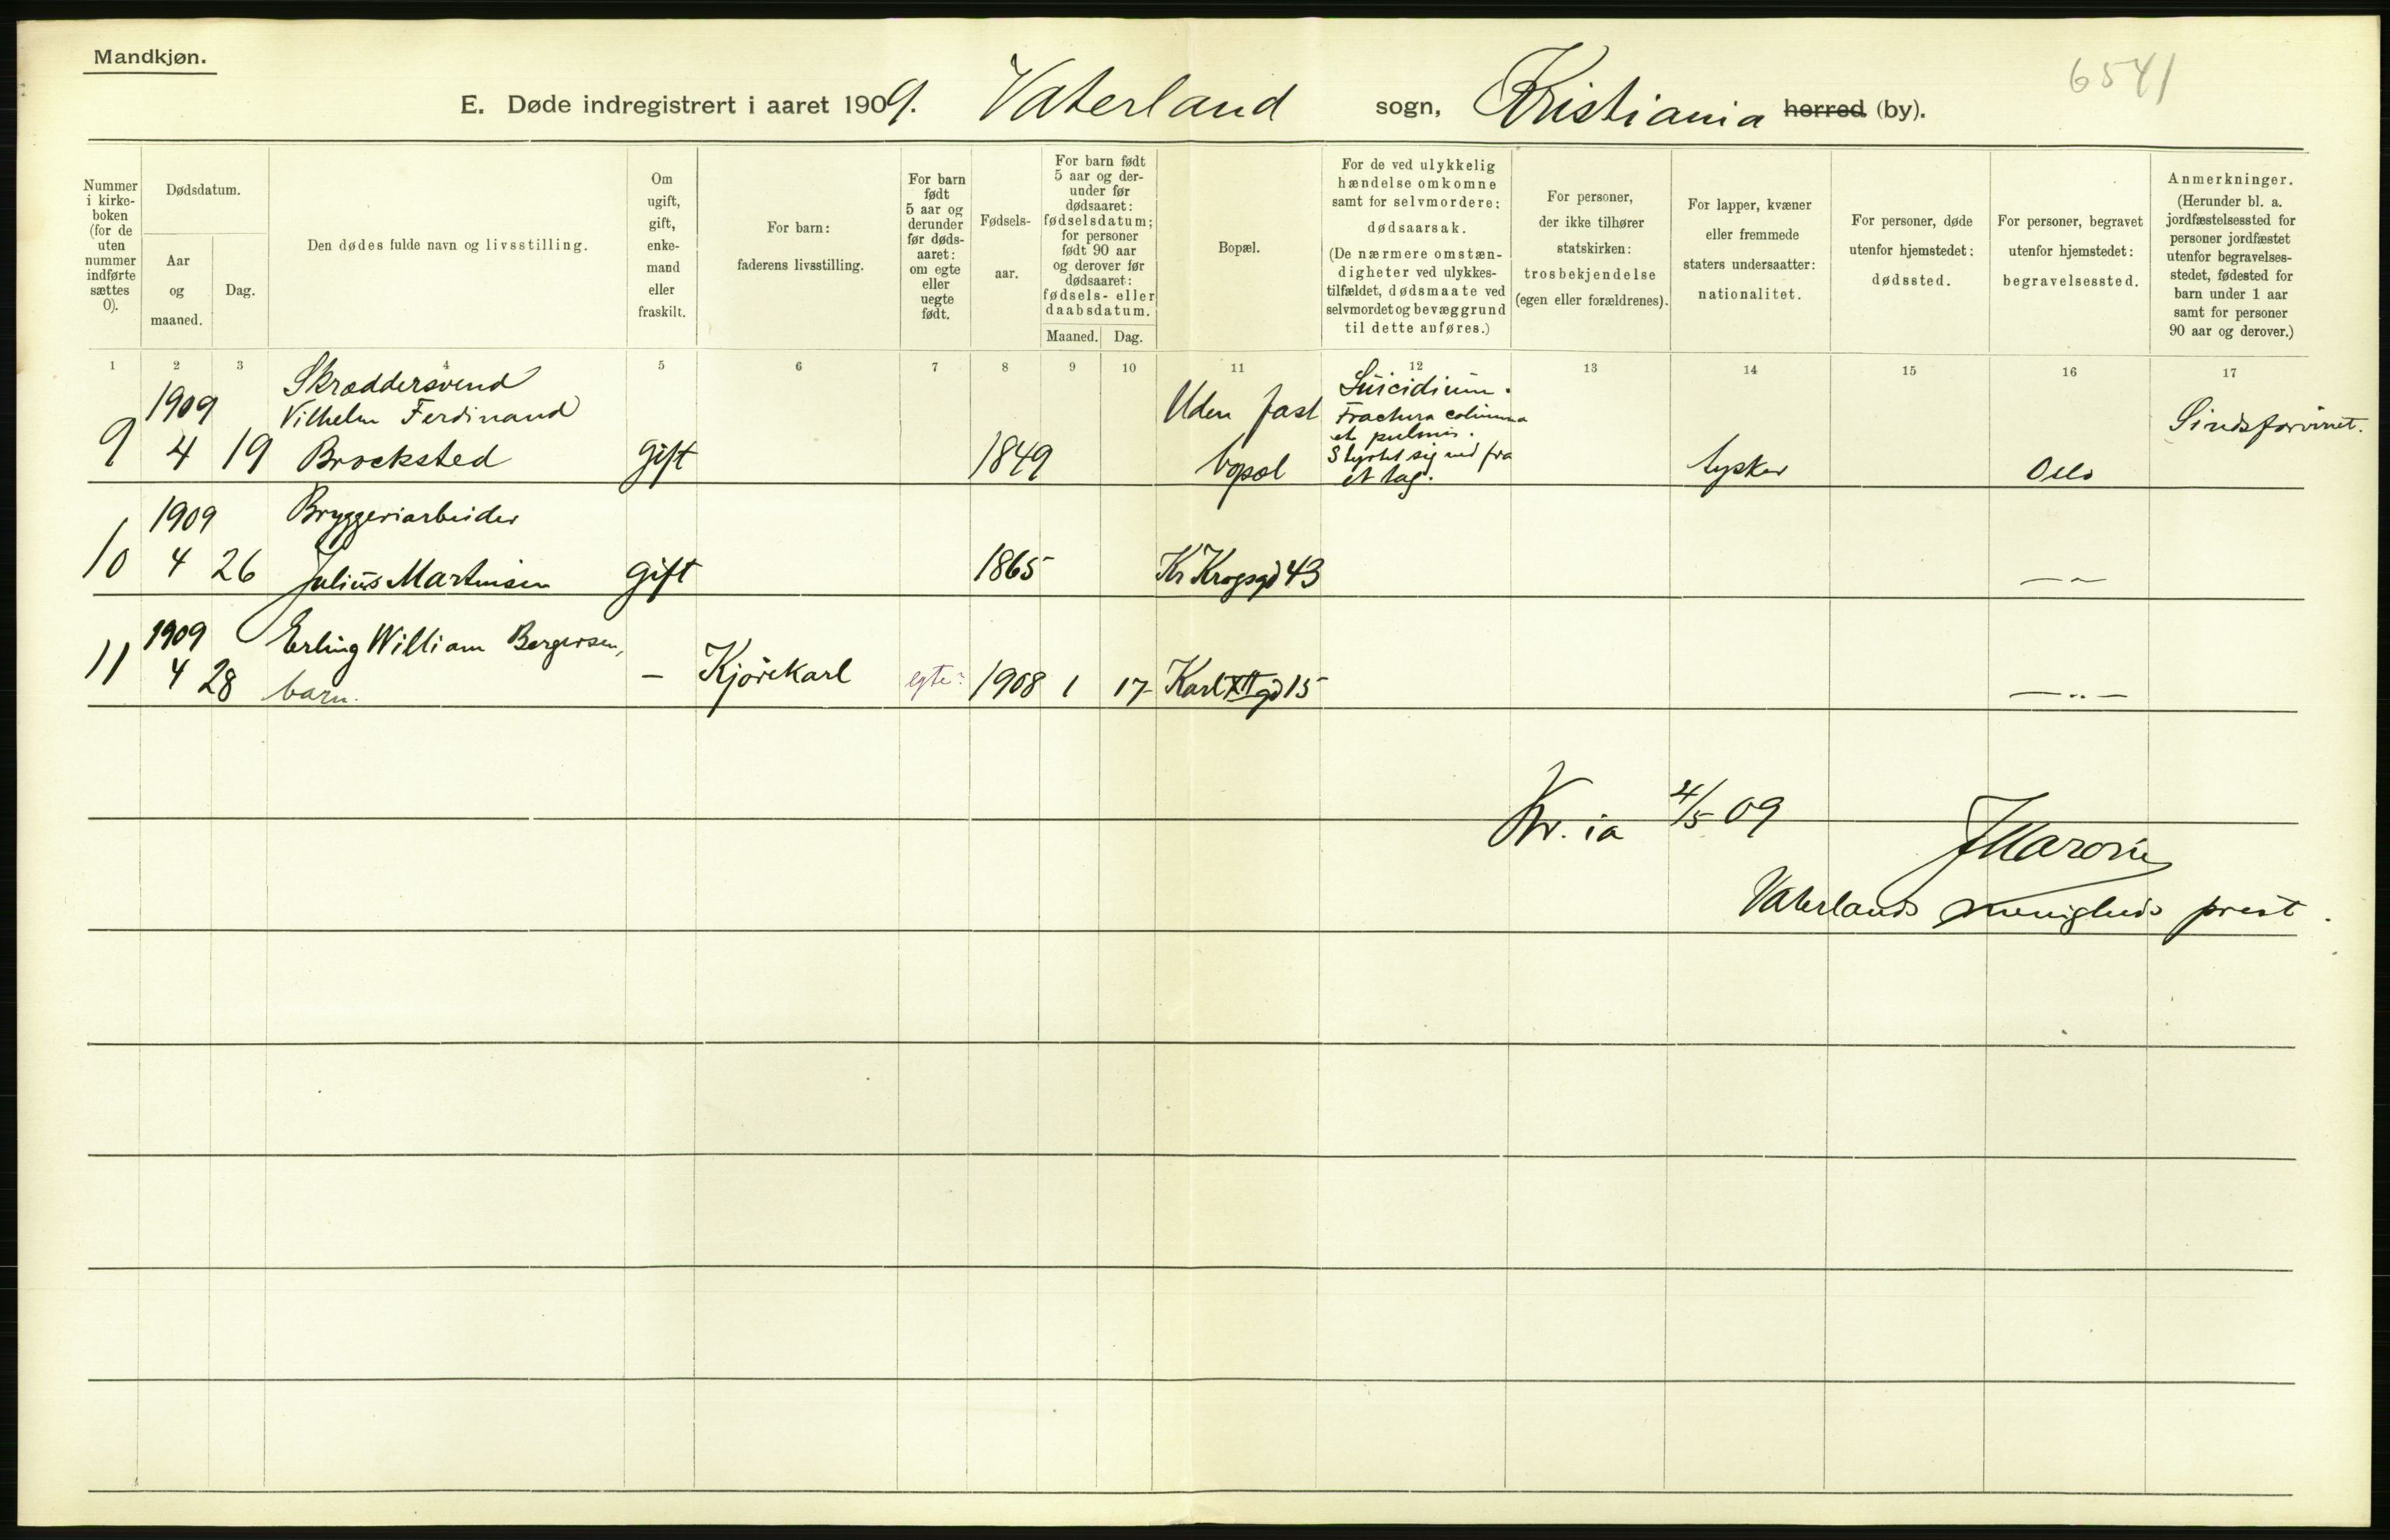 Mandkjøn.
6541
E. Døde indregistrert i aaret 1909. Vaterland sogn, Kristiania herred (by).
Nummer i kirke-boken (for de uten nummer indførte sættes 0).
Dødsdatum.
Aar og maaned.
Dag.
Den dødes fulde navn og livsstilling.
Om ugift, gift, enke-mand eller fraskilt.
For barn: faderens livsstilling.
For barn født 5 aar og derunder før døds-aaret: om egte eller uegte født.
Fødsels-aar.
For barn født 5 aar og der-under før dødsaaret: fødselsdatum; for personer født 90 aar og derover før dødsaaret: fødsels- eller daabsdatum.
Maaned. Dag.
Bopæl.
For de ved ulykkelig hændelse omkomne samt for selvmordere: dødsaarsak. (De nærmere omstæn-digheter ved ulykkes-tilfældet, dødsmaate ved selvmordet og bevæggrund til dette anføres.)
For personer, der ikke tilhører statskirken: trosbekjendelse (egen eller forældrenes).
For lapper, kvæner eller fremmede staters undersaatter: nationalitet.
For personer, døde utenfor hjemstedet: dødssted.
For personer, begravet utenfor hjemstedet: begravelsessted.
Anmerkninger. (Herunder bl. a. jordfæstelsessted for personer jordfæstet utenfor begravelses-stedet, fødested for barn under 1 aar samt for personer 90 aar og derover.)
1 2 3 4 5 6 7 8 9 10 11 12 13 14 15 16 17
1909 Skræddersvend Suicidium.
Vilhelm Ferdinand Uden fast Fractura columna Sindsforvirret.
et pulmis.
9 4 19 Brocksted gift 1849 bopæl Styrtet sig ned fra tysker Oslo
et tag.
1909 Bryggeriarbeider
10 4 26 Julius Martinsen gift 1865 Kr Krogsgd 43 — „ —
1909 Erling William Bergersen,
11 4 28 barn. — Kjørekarl egte 1908 1 17 Karl XII gd 15 — „ —
Kr.ia 4/5 09
Vaterlands menigheds prest.